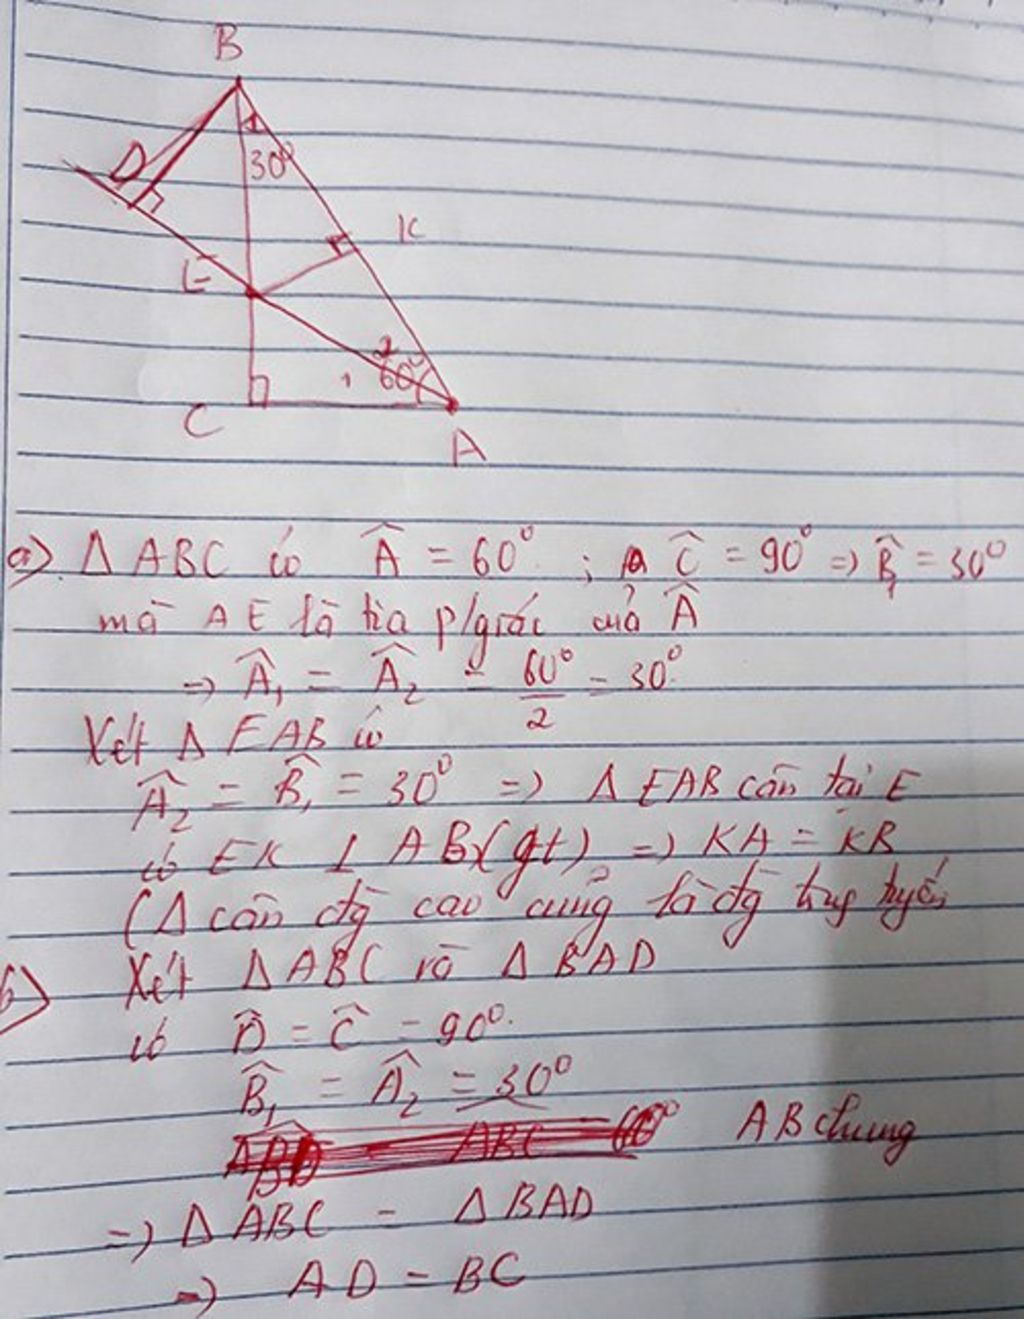 B
D
1
30⁰
K
E
2
1 60⁰
C
A
a) Δ ABC có Â = 60⁰ ; Ĉ = 90⁰ => B̂₁ = 30⁰
mà AE là tia p/giác của Â
=> Â₁ = Â₂ = 60⁰/2 = 30⁰
Xét Δ EAB có
Â₂ = B̂₁ = 30⁰ => Δ EAB cân tại E
có EK ⊥ AB (gt) => KA = KB
(Δ cân đg cao cũng là đg trung tuyến
b) Xét Δ ABC và Δ BAD
có D̂ = Ĉ = 90⁰.
B̂₁ = Â₂ = 30⁰
AB chung
=> Δ ABC = Δ BAD
=> AD = BC